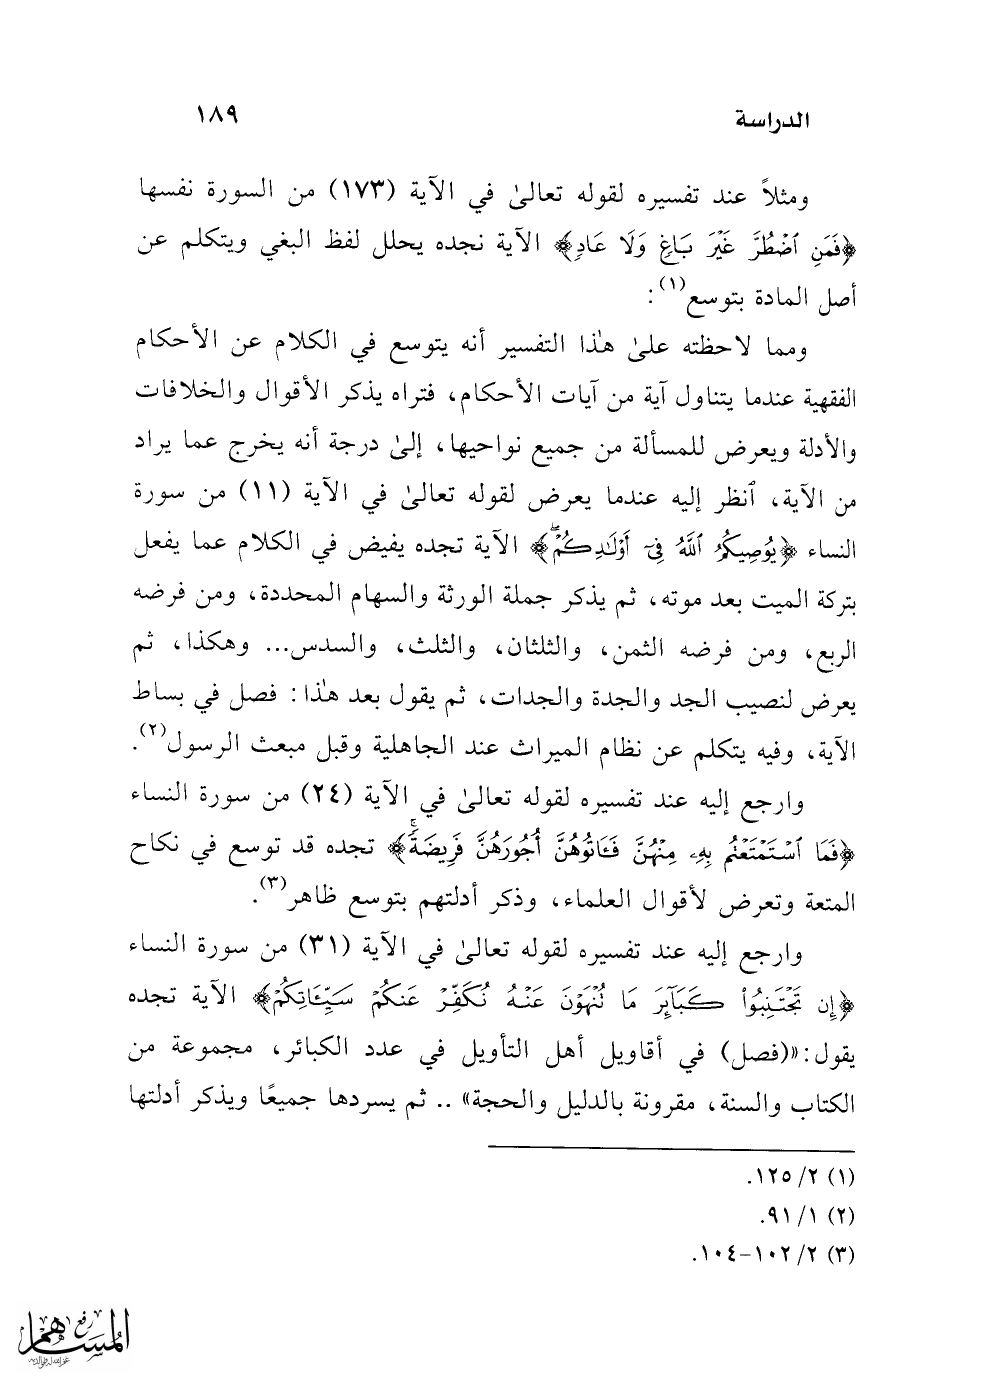 الدراسة ١٨٩
ومثلاً عند تفسيره لقوله تعالىٰ في الآية (١٧٣) من السورة نفسها
﴿فَمَنِ ٱضْطُرَّ غَيْرَ بَاغٍ وَلَا عَادٍ﴾ الآية نجده يحلل لفظ البغي ويتكلم عن
أصل المادة بتوسع(١):
ومما لاحظته علىٰ هٰذا التفسير أنه يتوسع في الكلام عن الأحكام
الفقهية عندما يتناول آية من آيات الأحكام، فتراه يذكر الأقوال والخلافات
والأدلة ويعرض للمسألة من جميع نواحيها، إلىٰ درجة أنه يخرج عما يراد
من الآية، ٱنظر إليه عندما يعرض لقوله تعالىٰ في الآية (١١) من سورة
النساء ﴿يُوصِيكُمُ ٱللَّهُ فِىٓ أَوْلَٰدِكُمْۖ﴾ الآية تجده يفيض في الكلام عما يفعل
بتركة الميت بعد موته، ثم يذكر جملة الورثة والسهام المحددة، ومن فرضه
الربع، ومن فرضه الثمن، والثلثان، والثلث، والسدس... وهكذا، ثم
يعرض لنصيب الجد والجدة والجدات، ثم يقول بعد هٰذا: فصل في بساط
الآية، وفيه يتكلم عن نظام الميراث عند الجاهلية وقبل مبعث الرسول(٢).
وارجع إليه عند تفسيره لقوله تعالىٰ في الآية (٢٤) من سورة النساء
﴿فَمَا ٱسْتَمْتَعْتُم بِهِۦ مِنْهُنَّ فَـَٔاتُوهُنَّ أُجُورَهُنَّ فَرِيضَةًۚ﴾ تجده قد توسع في نكاح
المتعة وتعرض لأقوال العلماء، وذكر أدلتهم بتوسع ظاهر(٣).
وارجع إليه عند تفسيره لقوله تعالىٰ في الآية (٣١) من سورة النساء
﴿إِن تَجْتَنِبُوا۟ كَبَآئِرَ مَا تُنْهَوْنَ عَنْهُ نُكَفِّرْ عَنكُمْ سَيِّـَٔاتِكُمْ﴾ الآية تجده
يقول: «(فصل) في أقاويل أهل التأويل في عدد الكبائر، مجموعة من
الكتاب والسنة، مقرونة بالدليل والحجة» .. ثم يسردها جميعًا ويذكر أدلتها
(١) ٢/ ١٢٥.
(٢) ١/ ٩١.
(٣) ٢/ ١٠٢-١٠٤.
رفع
المساهم